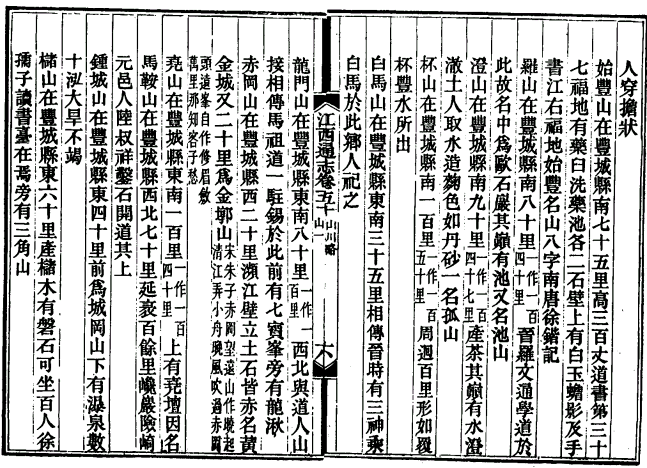 人穿擔狀
始豐山在豐城縣南七十五里高三百丈道書第三十
七福地有藥臼洗藥池各二石壁上有白玉蟾影及手
書江右福地始豐名山八字南唐徐鍇記
羅山在豐城縣南八十里一作一百四十里晉羅文通學道於
此故名中爲歐石巖其巔有池又名池山
澄山在豐城縣南九十里一作一百四十七里產茶其巔有水澄
澈土人取水造麴色如丹砂一名孤山
杯山在豐城縣南一百里一作一百五十里周迴百里形如覆
杯豐水所出
白馬山在豐城縣東南三十五里相傳晉時有三神乘
白馬於此鄉人祀之
江西通志卷五十 山川略 山一 六
龍門山在豐城縣東南八十里一作一百里西北與道人山
接相傳馬祖道一駐錫於此前有七寶峯旁有龍湫
赤岡山在豐城縣西二十里瀕江壁立土石皆赤名黃
金城又二十里爲金郭山宋朱子赤岡望遠山作曉起清江弄小舟晚風吹過赤岡
頭遠峯自作修眉斂萬里那知客子愁
堯山在豐城縣東南一百里一作一百四十里上有堯壇因名
馬鞍山在豐城縣西北七十里延袤百餘里巉巖險峭
元邑人陸叔祥鑿石開道其上
鍾城山在豐城縣東四十里前爲城岡山下有瀑泉數
十泓大旱不竭
櫧山在豐城縣東六十里產櫧木有磐石可坐百人徐
孺子讀書臺在焉旁有三角山